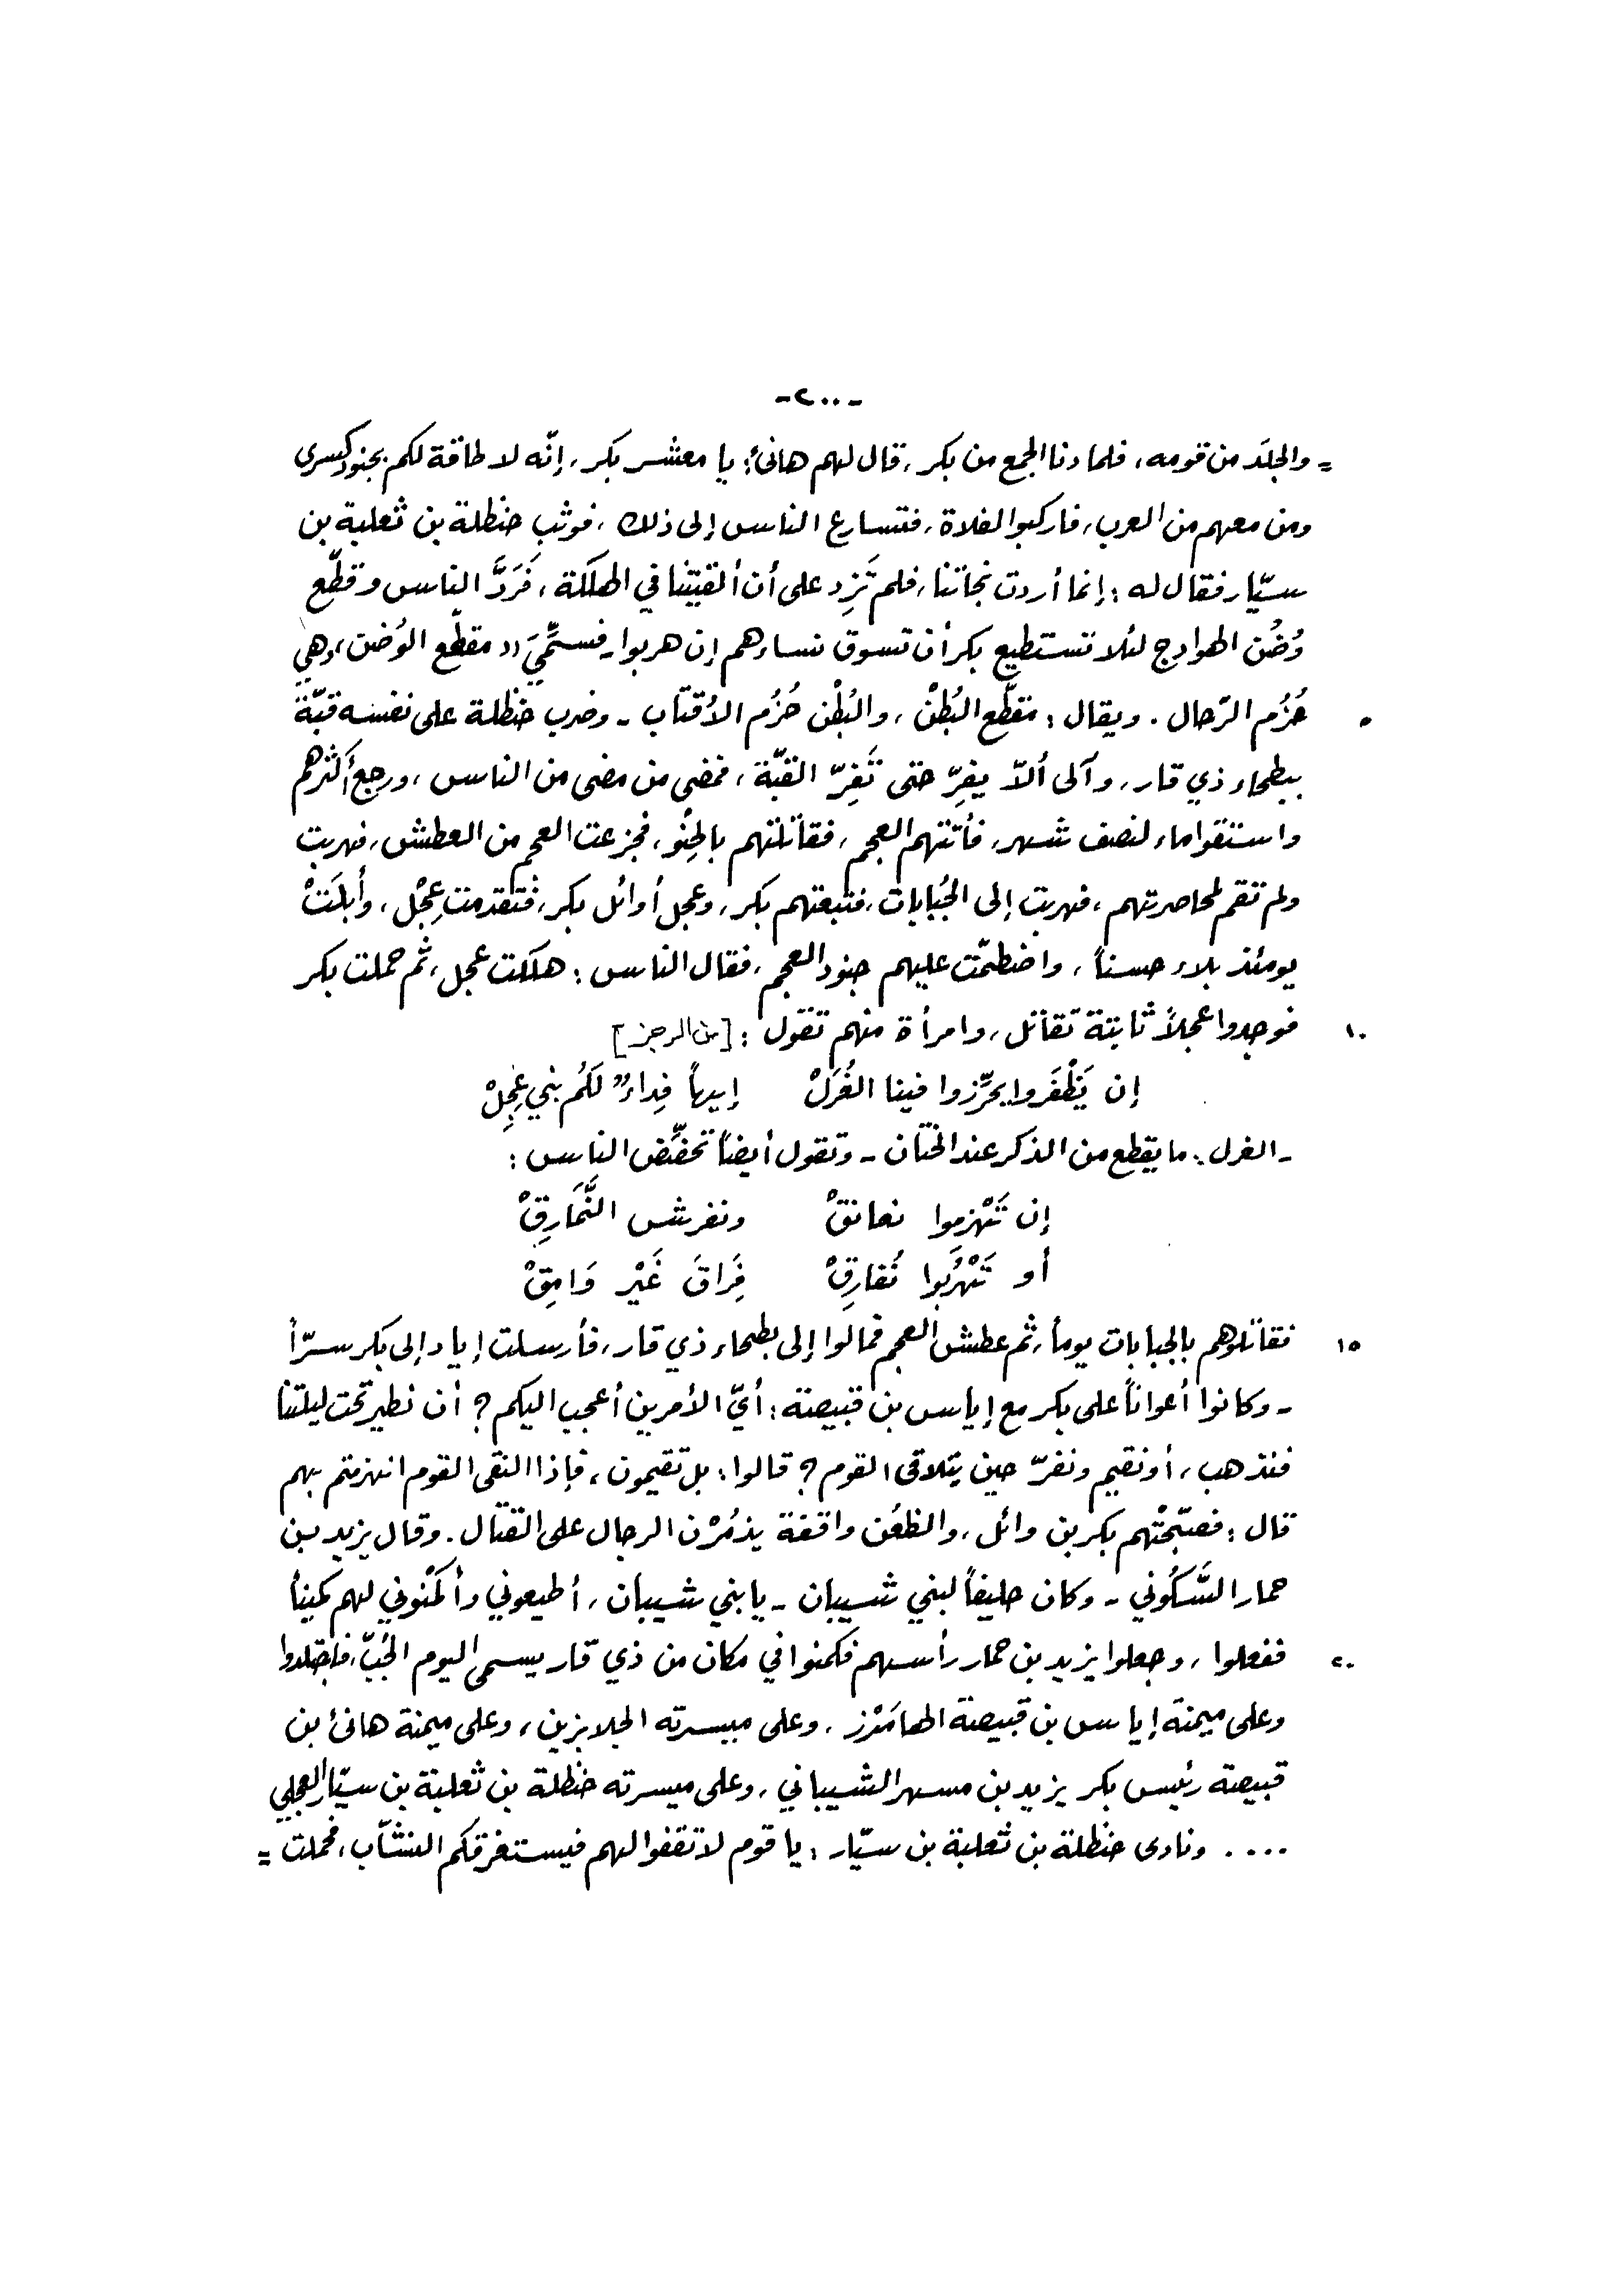 -٢٠٠-
= والجلَد من قومه، فلما دنا الجمع من بكر، قال لهم هانئ: يا معشر بكر، إنّه لا طاقة لكم بجنود كسرى
ومن معهم من العرب، فاركبوا الفلاة، فتسارع الناس إلى ذلك، فوثب حنظلة بن ثعلبة بن
سيّار فقال له: إنما أردت نجاتنا، فلم تَزِد على أن ألقيتنا في الهلكة، فَرَدَّ الناس وقطّع
وُضُن الهوادج لئلا تستطيع بكر أن تسوق نساءهم إن هربوا - فسمِّيَ «مقطّع الوُضن»، وهي
٥ حُزُم الرّحال. ويقال: مقطّع البُطْن، والبُطْن حُزُم الأقتاب - وضرب حنظلة على نفسه قبّة
ببطحاء ذي قار، وآلى ألاّ يفِرّ حتى تَفِرّ القبّة، فمضى من مضى من الناس، ورجع أكثرهم
واستقوا ماء لنصف شهر، فأتتهم العجم، فقاتلتهم بالحِنْو، فجزعت العجم من العطش، فهربت
ولم تقم لمحاصرتهم، فهربت إلى الجُبابات، فتبعتهم بكر، وعجل أوائل بكر، فتقدمت عِجْل، وأبلَتْ
يومئذ بلاء حسناً، واضطمّت عليهم جنود العجم، فقال الناس: هلكت عجل، ثم حملت بكر
١٠ فوجدوا عجلاً ثابتة تقاتل، وامرأة منهم تقول: [من الرجز]
إن يَظْفَروا يحرِّزوا فينا الغُرَلْ إيهاً فِداءٌ لَكُم بني عِجِلْ
- الغرل: ما يقطع من الذكر عند الختان - وتقول أيضاً تحضِّض الناس:
إن تَهْزموا نعانقْ ونفرش النَّمَارِقْ
أو تَهْرُبُوا نُفارِقْ فِرَاقَ غَيْر وَامِقْ
١٥ فقاتلوهم بالجبابات يوماً، ثم عطش العجم فمالوا إلى بطحاء ذي قار، فأرسلت إياد إلى بكر سرّاً
- وكانوا أعواناً على بكر مع إياس بن قبيصة: أيّ الأمرين أعجب اليكم؟ أن نطير تحت ليلتنا
فنذهب، أو نقيم ونفرّ حين يتلاقى القوم؟ قالوا: بل تقيمون، فإذا التقى القوم انهزمتم بهم
قال: فصبّحتْهم بكر بن وائل، والظعُن واقفة يذمُرْن الرجال على القتال. وقال يزيد بن
حمار السَّكُوني - وكان حليفاً لبني شيبان - يا بني شيبان، أطيعوني وأكمنوني لهم كميناً
٢٠ ففعلوا، وجعلوا يزيد بن حمار رأسهم فكمنوا في مكان من ذي قار يسمى اليوم الجُبّ، فاجتلدوا
وعلى ميمنة إياس بن قبيصة الهامَرْز، وعلى ميسرته الجلابزين، وعلى ميمنة هانئ بن
قبيصة رئيس بكر يزيد بن مسهر الشيباني، وعلى ميسرته حنظلة بن ثعلبة بن سيّار العجلي
.... ونادى حنظلة بن ثعلبة بن سيّار: يا قوم لا تقفوا لهم فيستغرقكم النشّاب، فحملت =